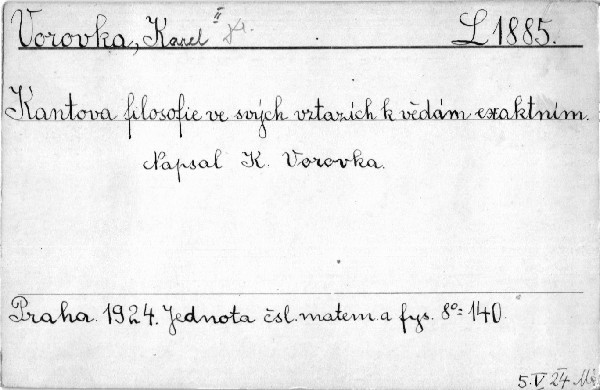 Vorovka, Karel II L 1885.
Kantova filosofie ve svých vztazích k vědám exaktním.
Napsal K. Vorovka.
Praha. 1924. Jednota čsl. matem a fys. 8º= 140.
5. V 24